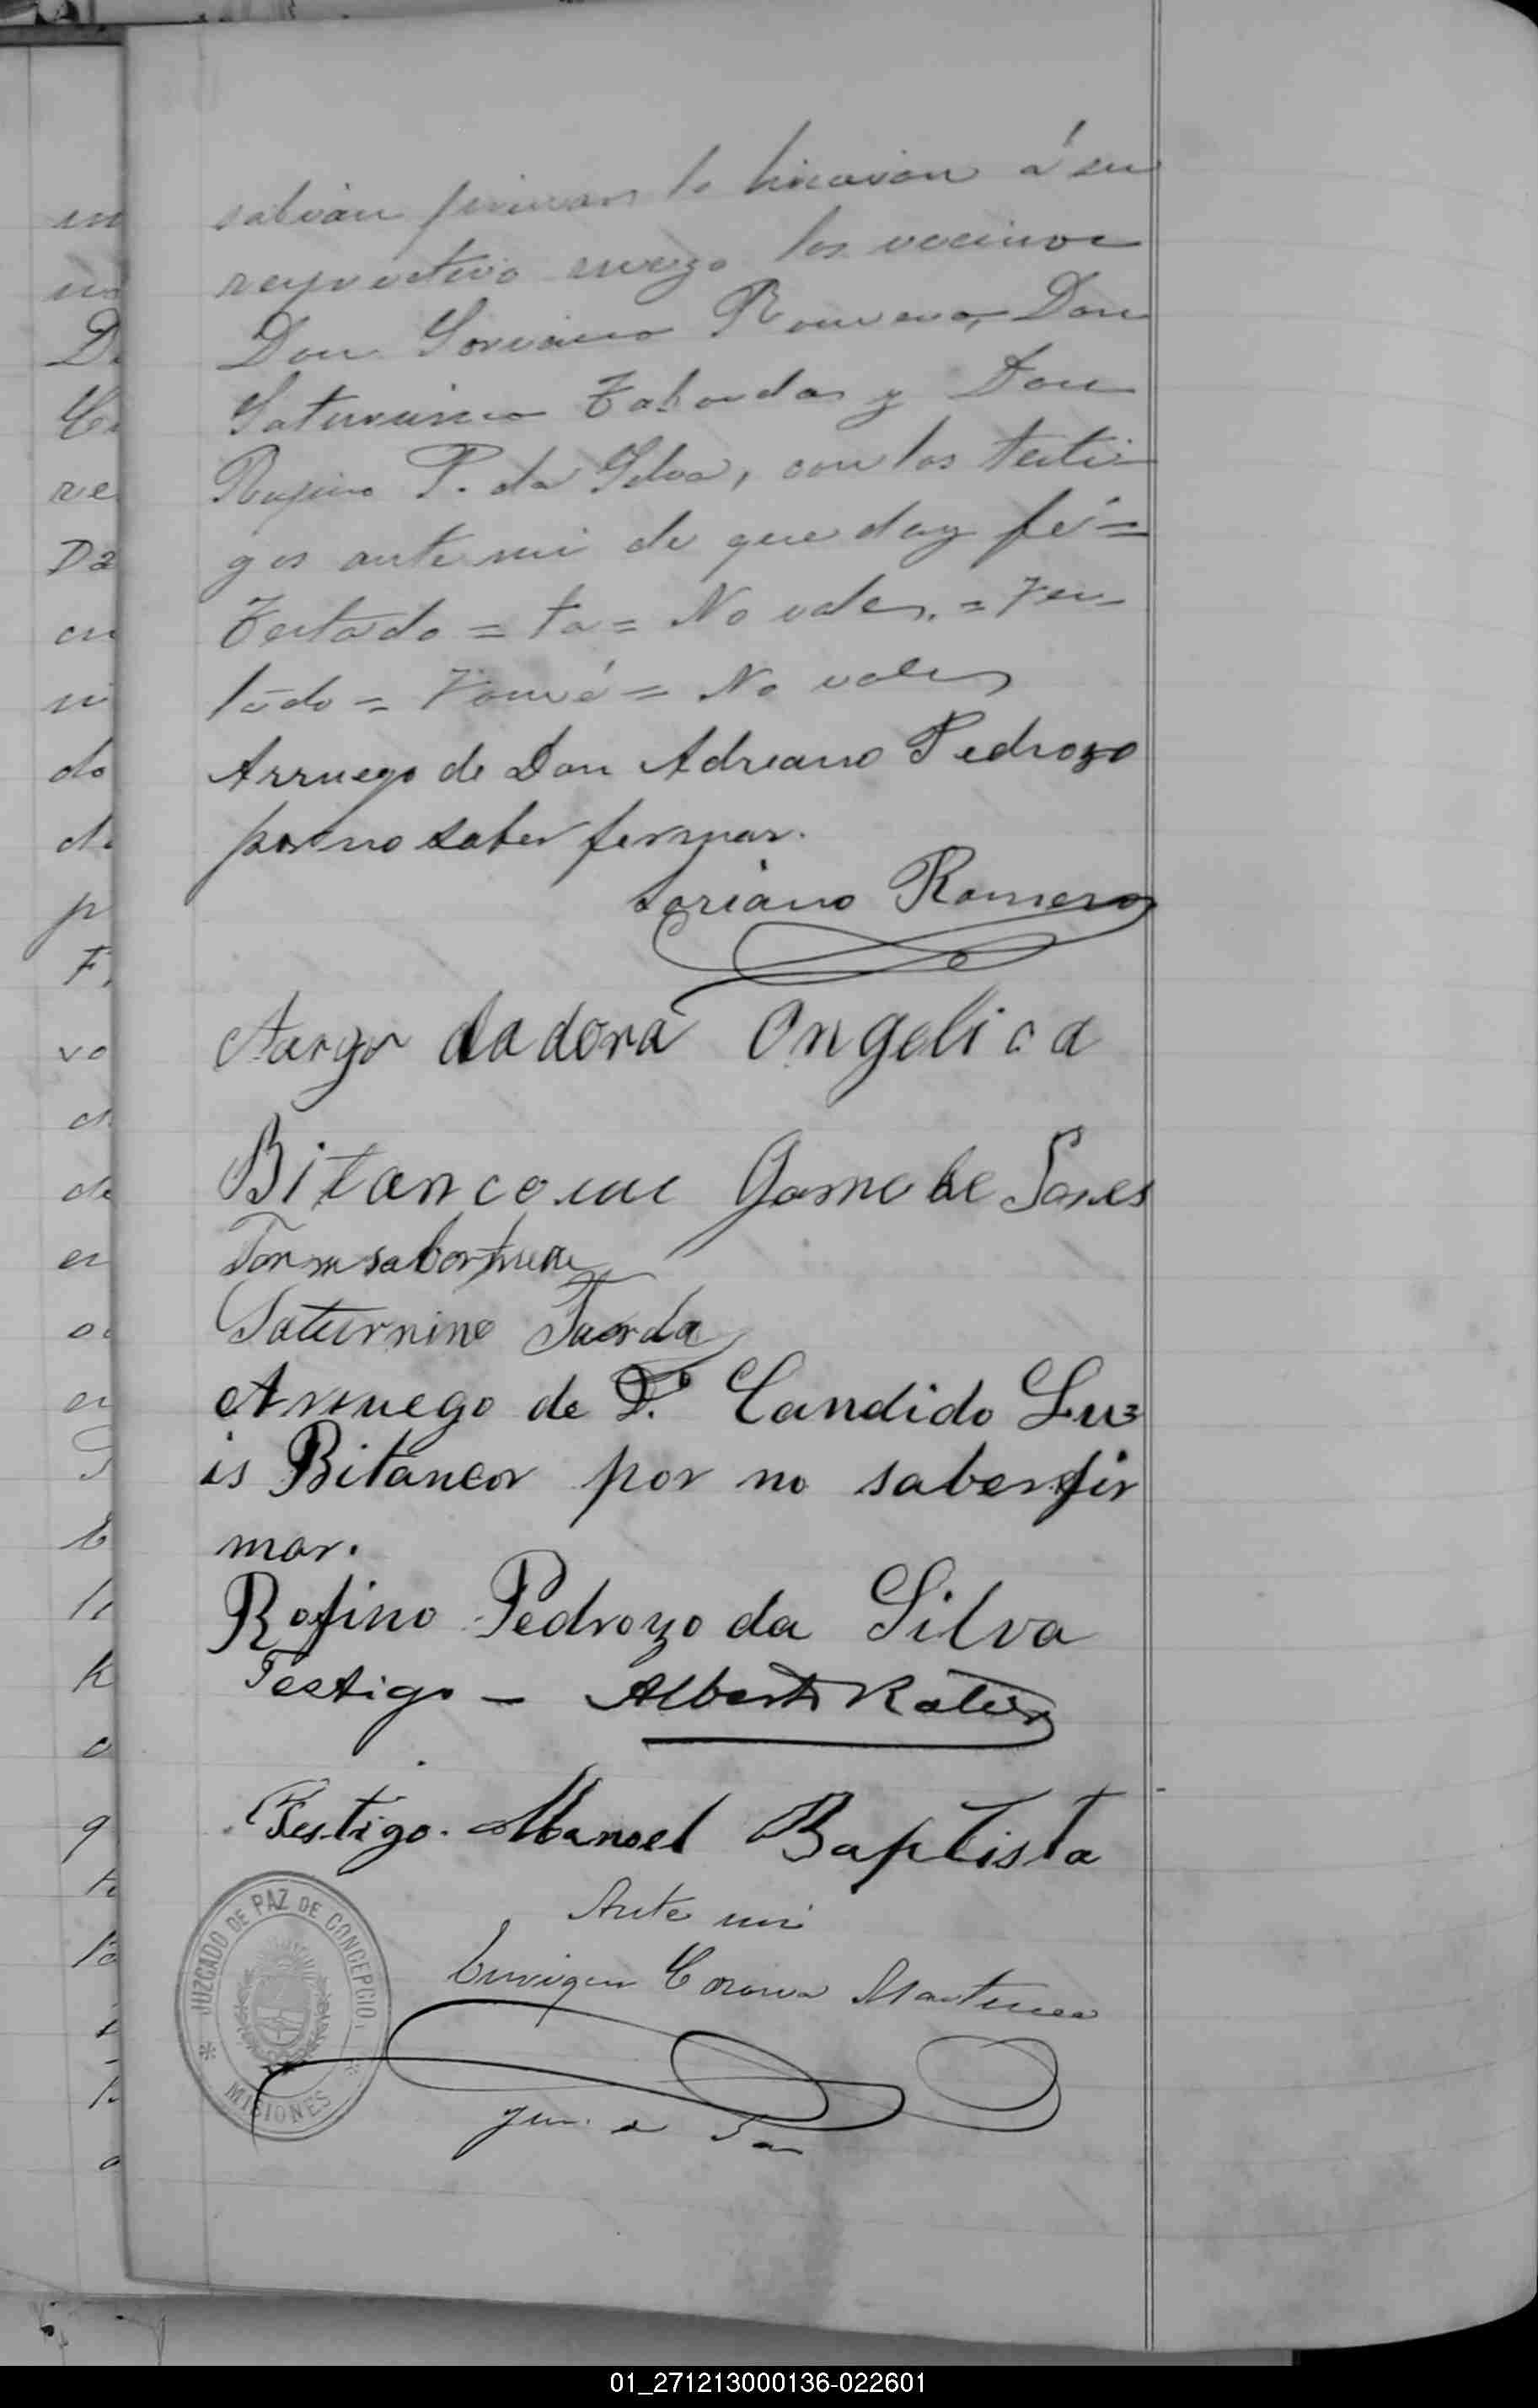 sabian firmar lo hicieron á su
respectivo ruego los vecinos
Don Soriano Romero, Don
Saturnino Taborda y Don
Rufino P. da Silva, con los testi-
gos ante mi de que doy fé=
Testado = ta = No vale. = Tes-
tado = = No vale
Arruego de Don Adreano Pedrozo
por no saber fermar.
Soriano Romero
dadora Ongelica
Bitancour Gome de
Saturnino Taorda
Arruego de D. Candido Lu=
is Bitancor por no saber fir
mar.
Rofino Pedrozo da Silva
Testigo - Alberto
Testigo. Manoel Baptista
Ante mi
Enrique Corona Martinez
Juez de Paz
JUZGADO DE PAZ DE CONCEPCIO.
MISIONES
in
no
D.
re
Da
cu
ni
do
de
p
F.
vo
d.
de
er
er
k
o
q
01_271213000136-022601